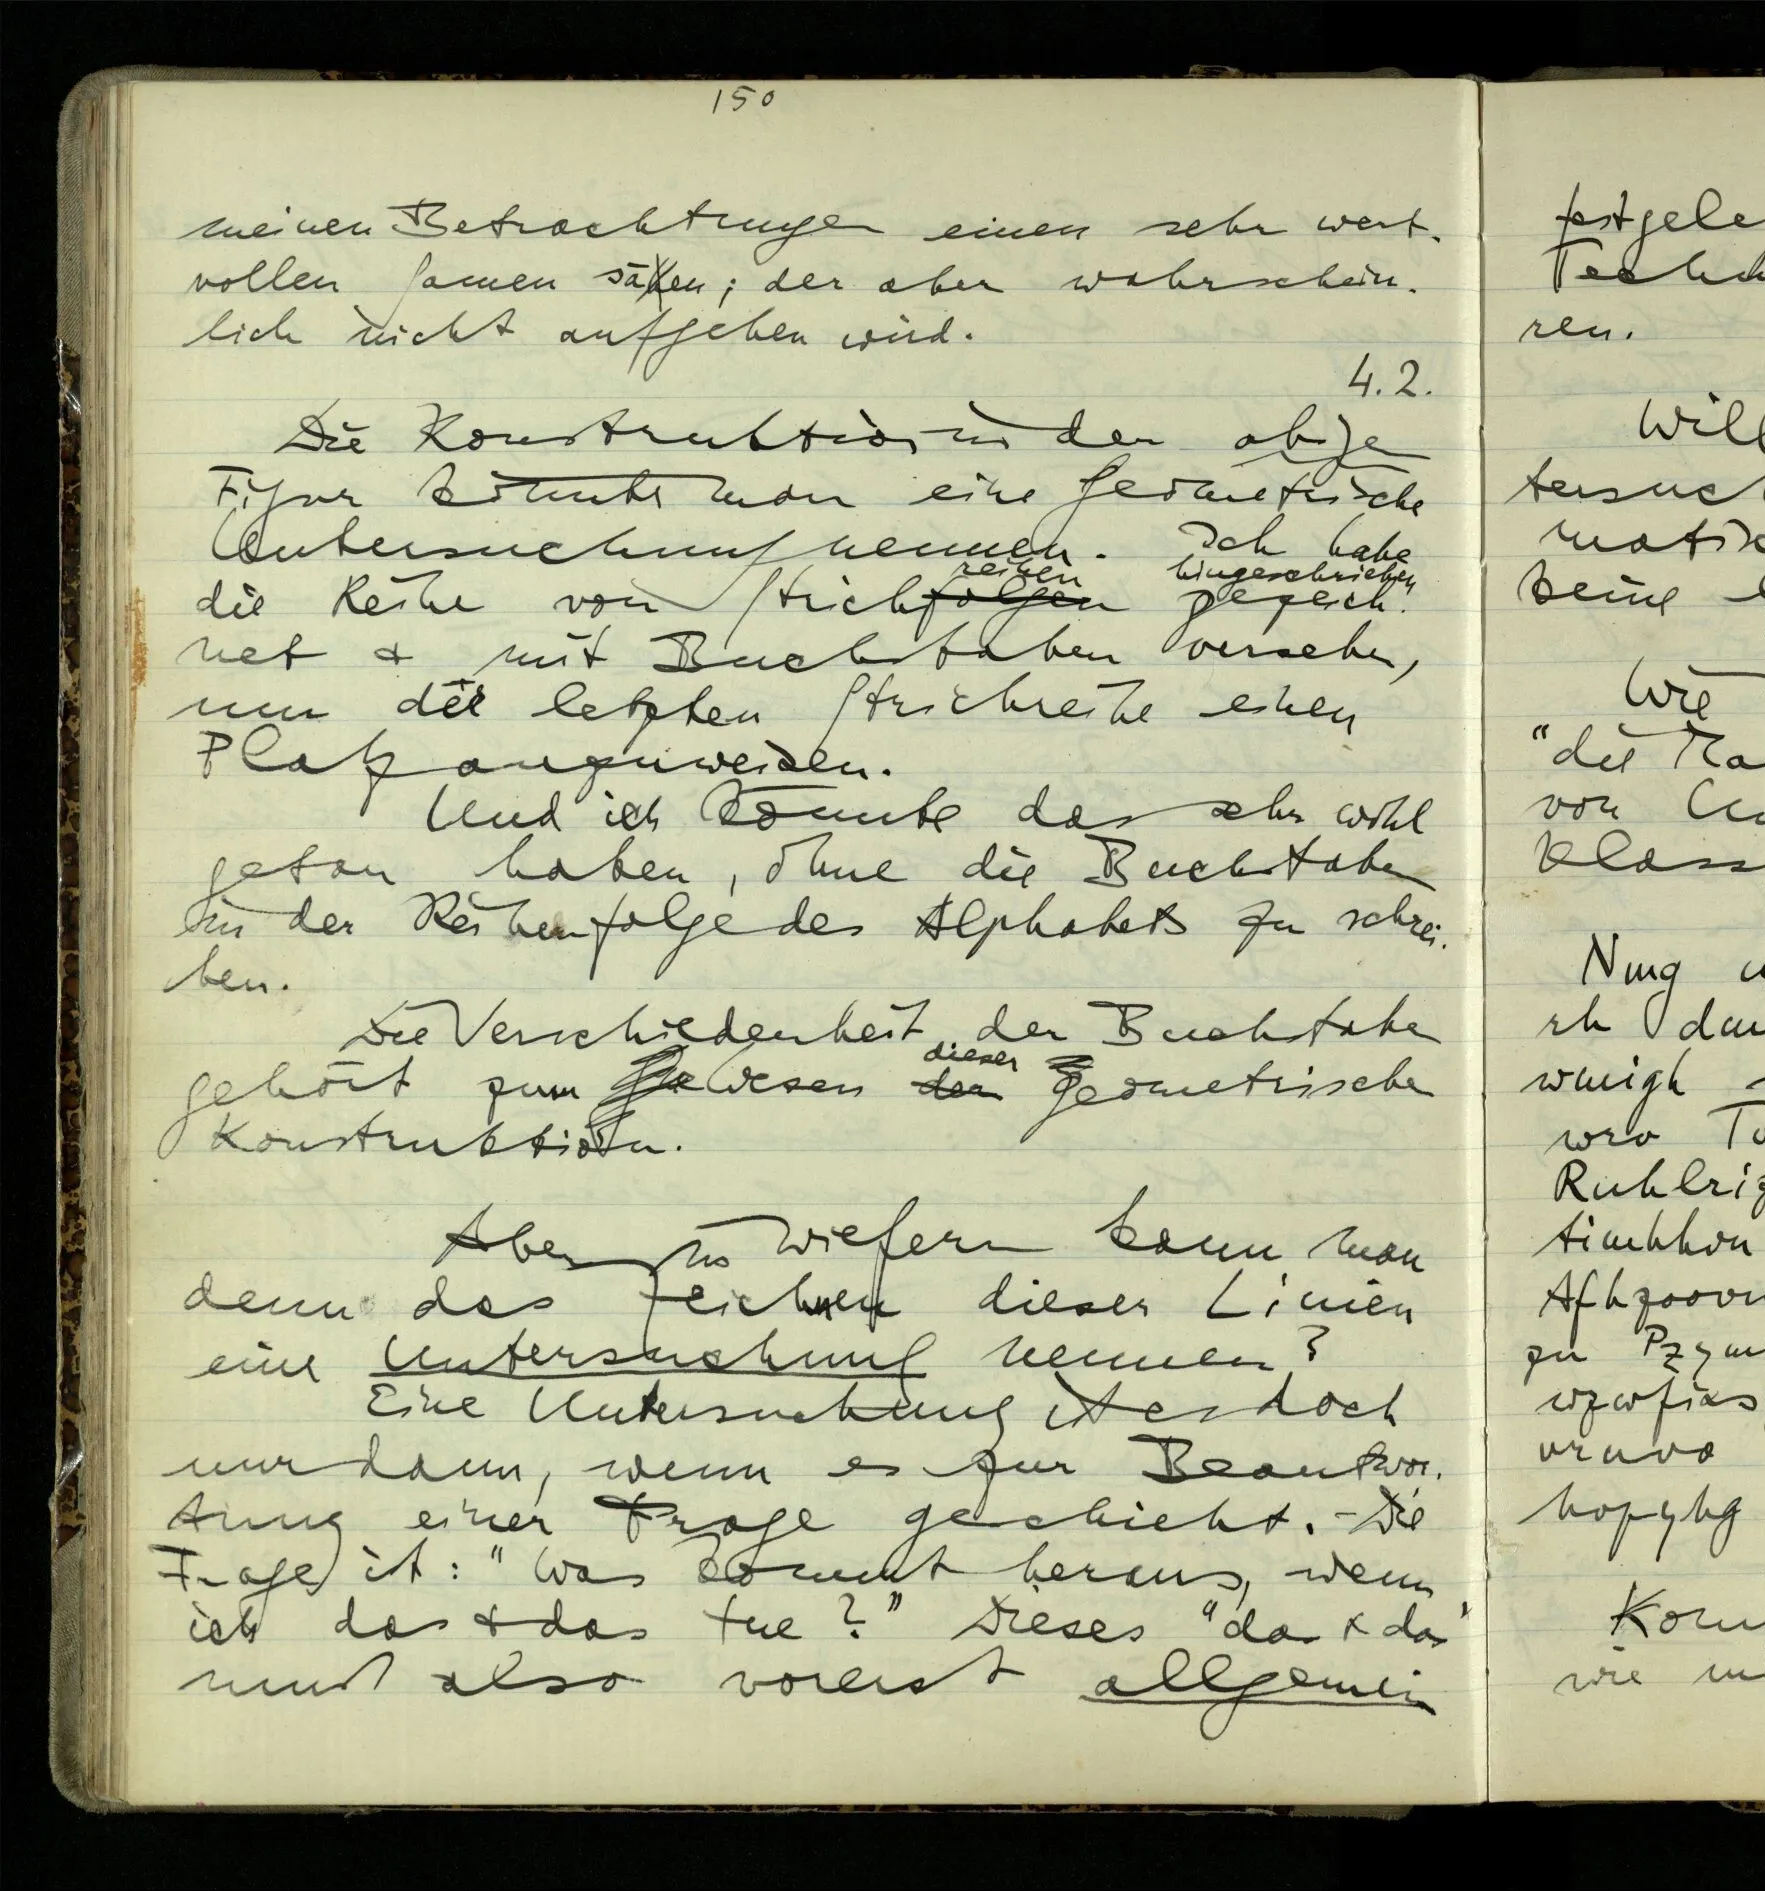 150
meinen Betrachtungen einen sehr wert-
vollen Samen säen; der aber wahrschein-
lich nicht aufgehen wird.
4.2.
Die Konstruktion in der obigen
Figur könnte man eine geometrische
Untersuchung nennen. Ich habe
reihen hingeschrieben
die Reihe von Strichfolgen gezeich-
net & mit Buchstaben versehen,
um der letzten Strichreihe einen
Platz anzuweisen.
Und ich könnte das sehr wohl
getan haben, ohne die Buchstaben
in der Reihenfolge des Alphabets zu schrei-
ben.
Die Verschiedenheit der Buchstaben
dieser
gehört zum Wesen der geometrischen
Konstruktion.
Aber in wiefern kann man
denn das Zeichnen dieser Linien
eine Untersuchung nennen?
Eine Untersuchung ist es doch
nur dann, wenn es zur Beantwor-
tung einer Frage geschieht. – Die
Frage ist: "Was kommt heraus, wenn
ich das & das tue?" Dieses "das & das"
muß also vorerst allgemein
festgele
Techn
ren.
Will
tersuch
matik
keine
Wie
"die Ma
von Un
Klass
Nmg
rh
wmigh
wrv
Ruhlriz
zu
hopyhg
wie